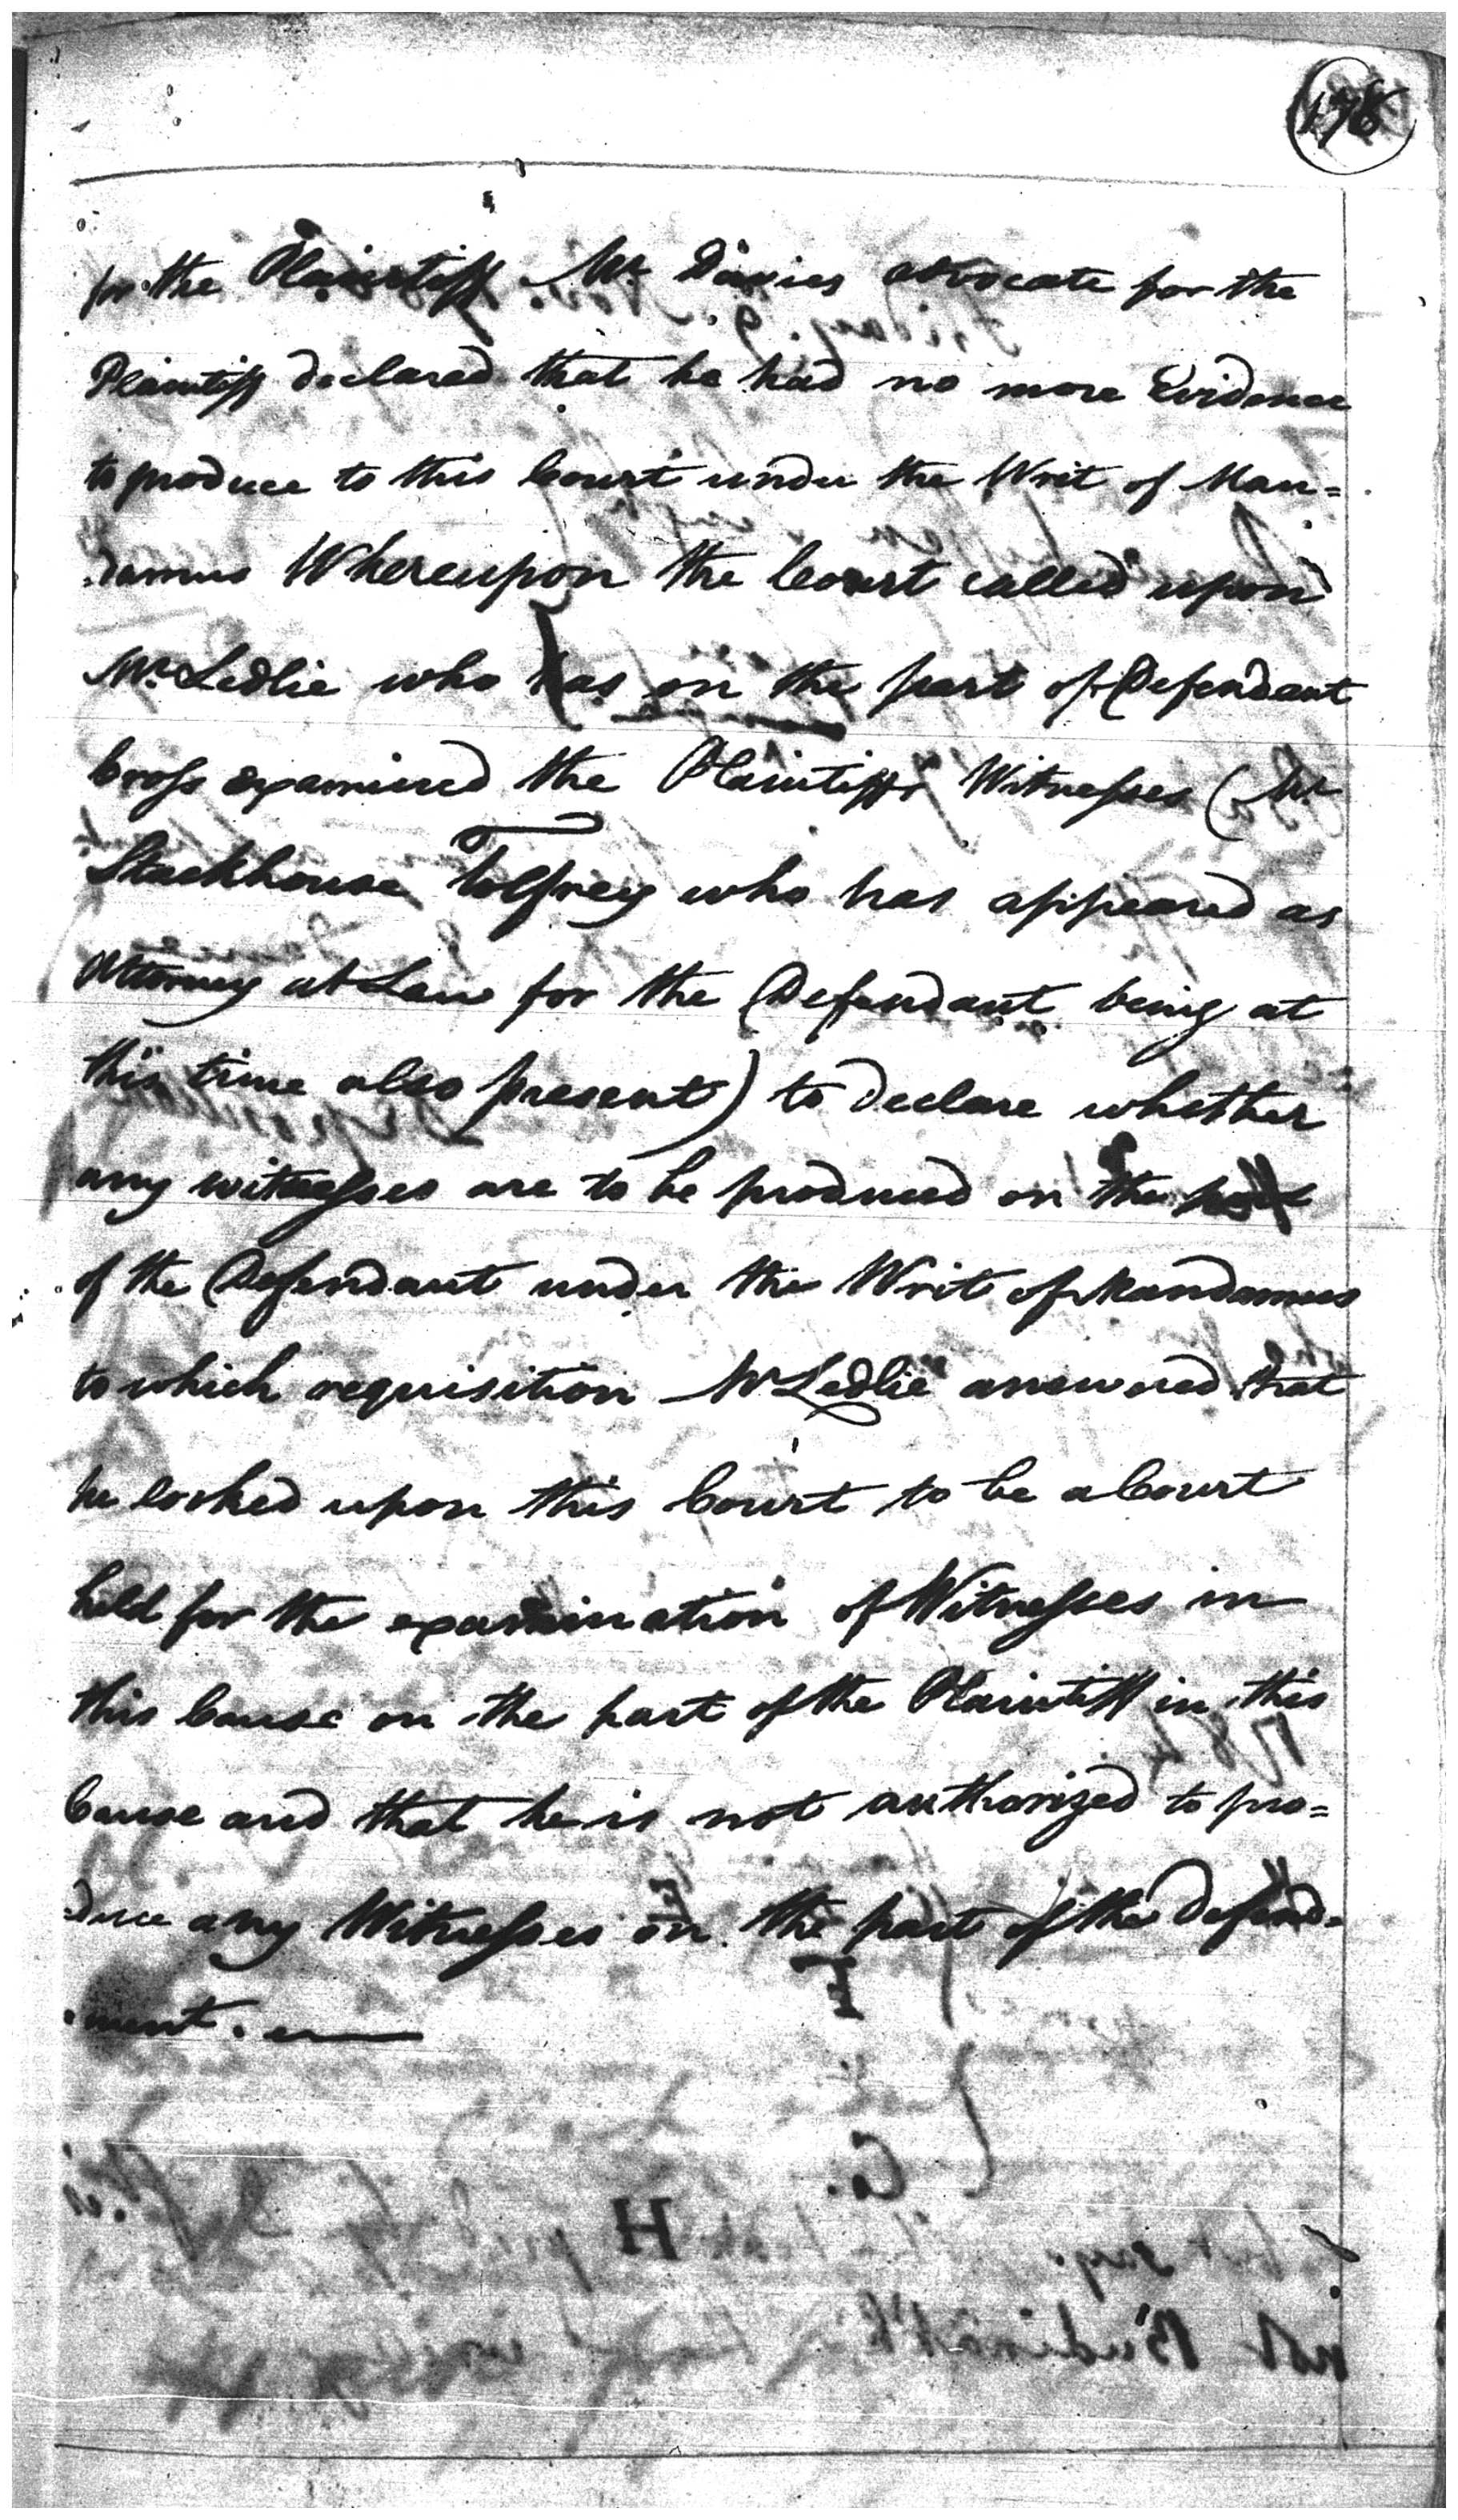 178
for the Plaintiff Mr. Davies advocate for the
Plaintiff declared that he had no more Evidence
to produce to this Court under the Writ of Man=
damus Whereupon the Court called upon
Mr. Ledlie who has on the part of Defendant
Cross examined the Plaintiffs Witnesses (Mr
Stackhouse Tolfrey who has appeared as
Attorney at Law for the Defendant being at
this time also present) to declare whether
any witnesses are to be produced on the part
of the Defendant under the Writ of Mandamus
to which requisition Mr Ledlie answered that
he looked upon this Court to be a Court
held for the examination of Witnesses in
this Cause on the part of the Plaintiff in this
Cause and that he is not authorized to pro=
duce any Witnesses on the part of the Defend=
ment.